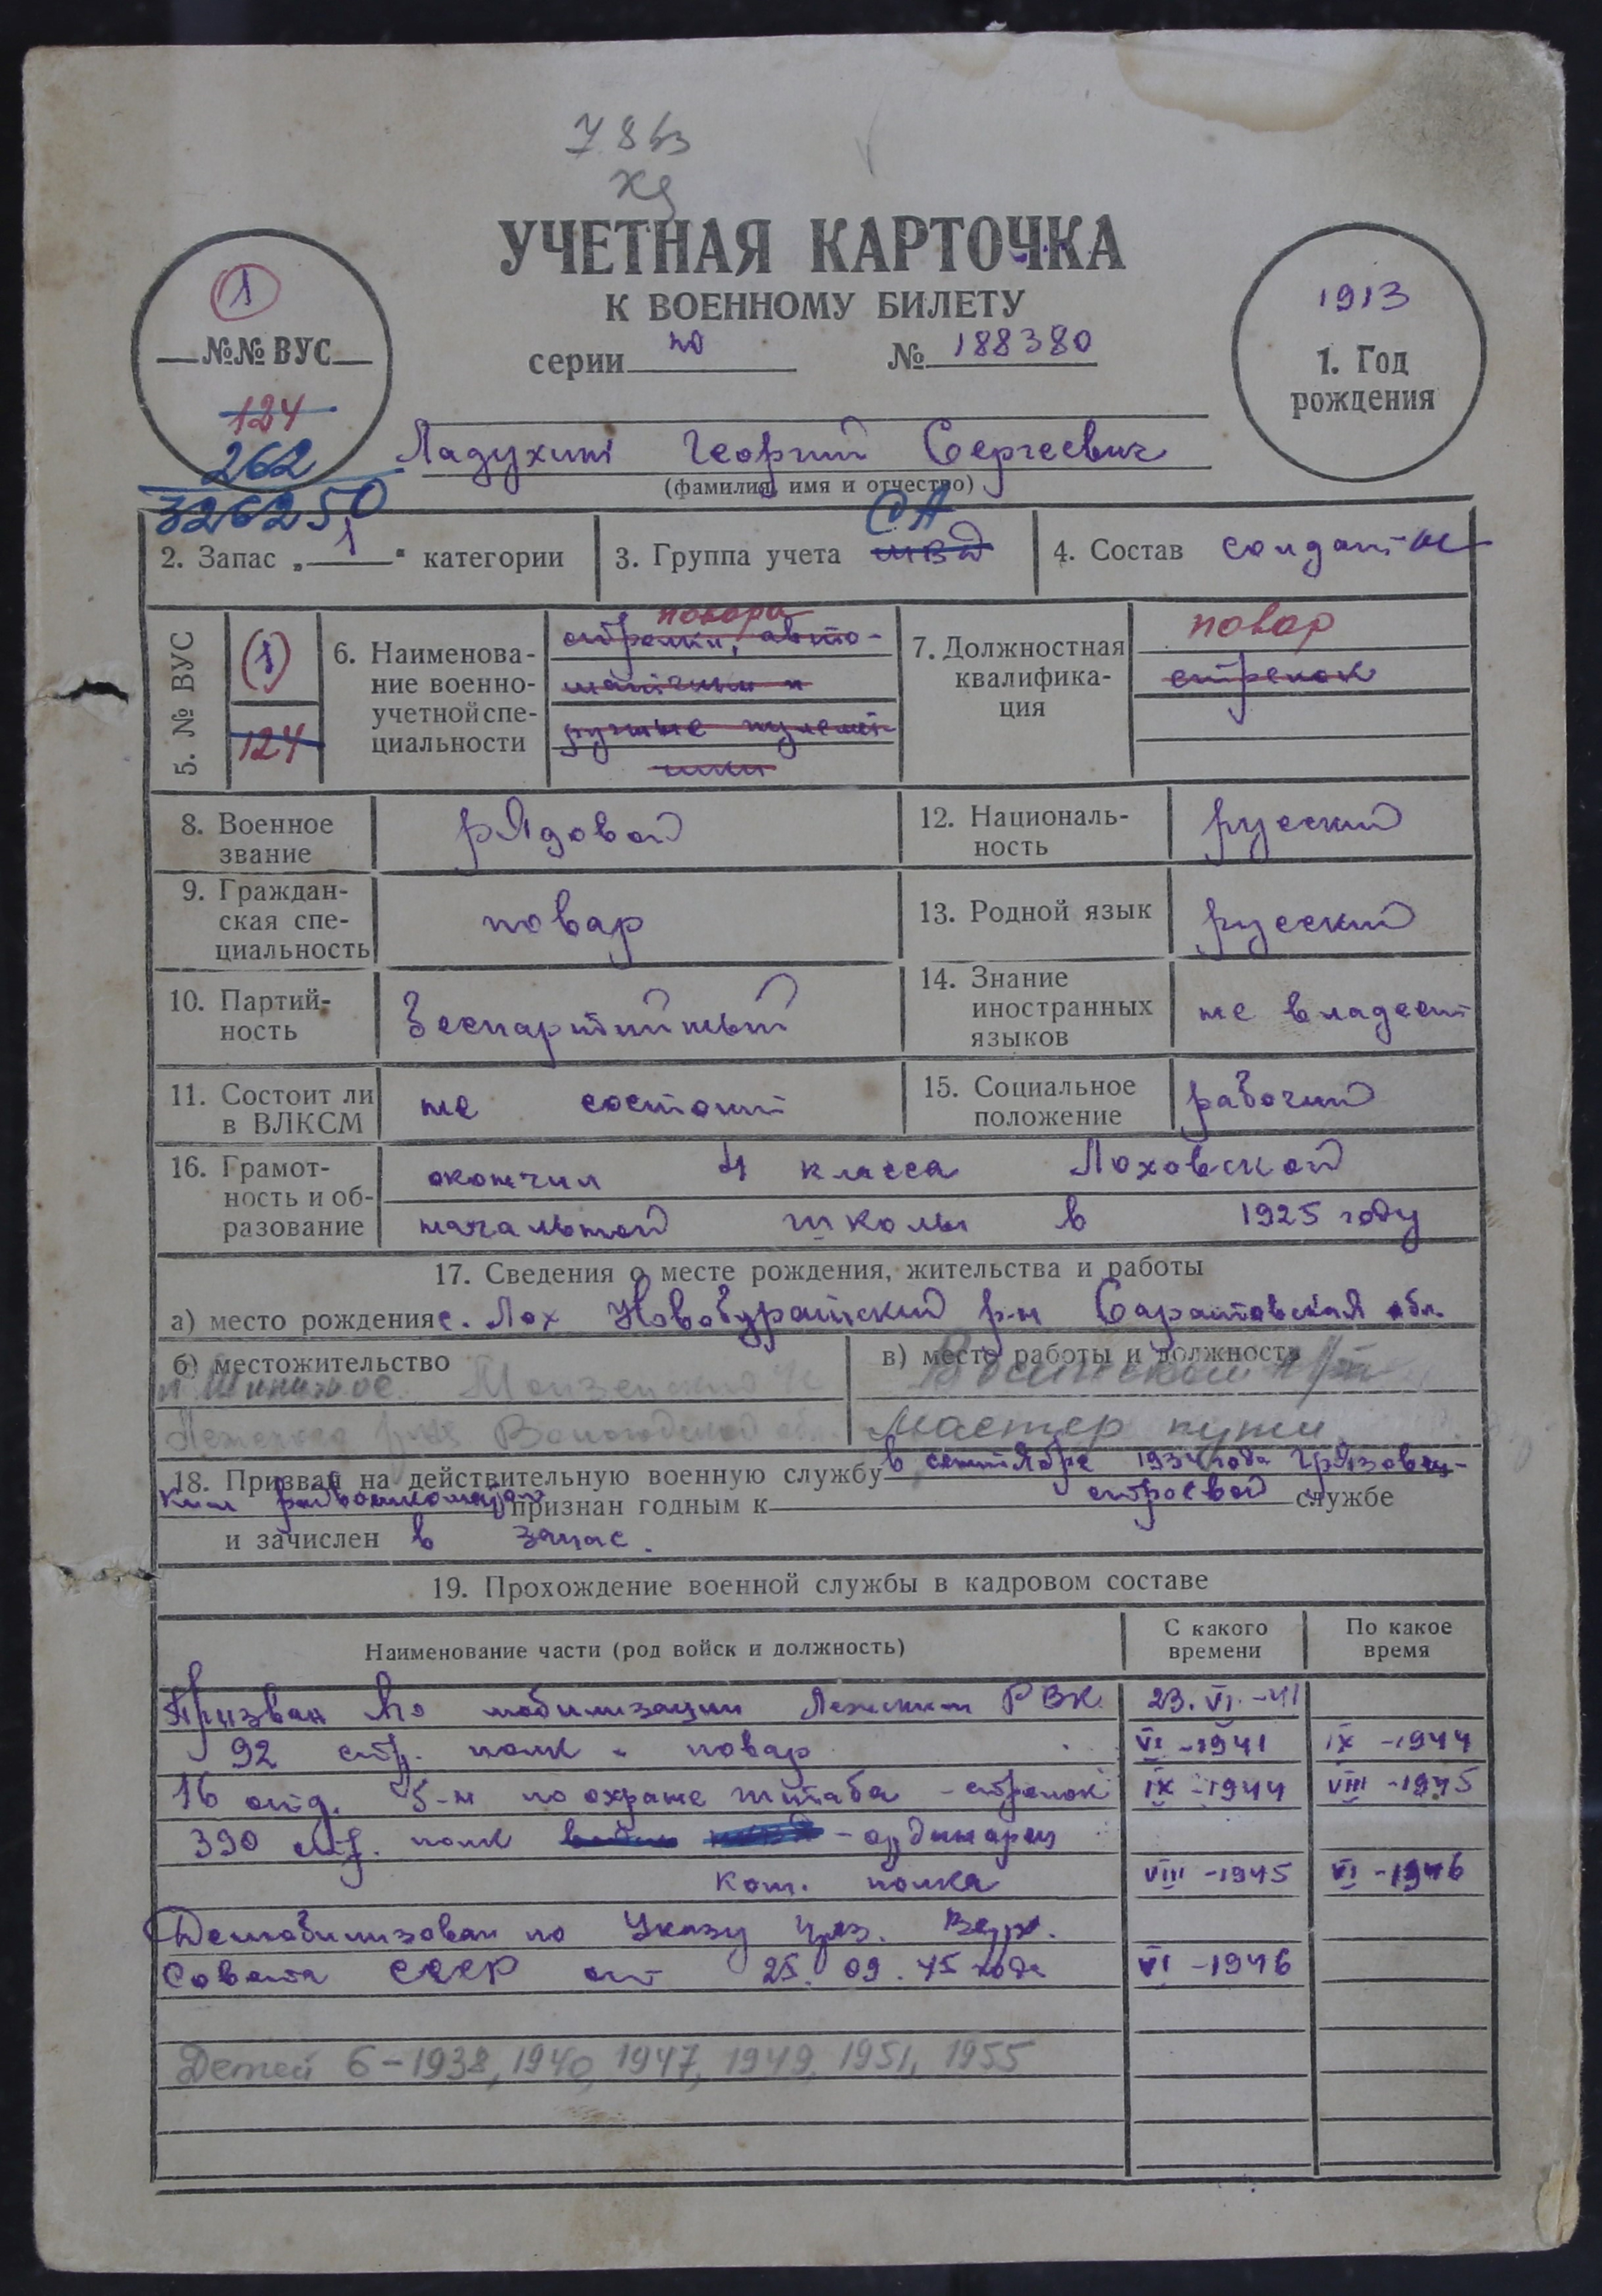 УЧЕТНАЯ КАРТОЧКА
К ВОЕННОМУ БИЛЕТУ
серии № 188380
1
№№ ВУС
124
262
3262 50
1913
1. Год
рождения
Ладухин Георгий Сергеевич
(фамилия, имя и отчество)
2. Запас „1" категории
3. Группа учета МВД СА
4. Состав солдат
5. № ВУС
(1)
124
6. Наименова-
ние военно-
учетной спе-
циальности
повара
стрелки, авто-
матчики и
ручные пулемет-
чики
7. Должностная
квалифика-
ция
повар
стрелок
8. Военное
звание
рядовой
12. Националь-
ность
русский
9. Граждан-
ская спе-
циальность
повар
13. Родной язык
русский
10. Партий-
ность
беспартийный
14. Знание
иностранных
языков
не владеет
11. Состоит ли
в ВЛКСМ
не состоит
15. Социальное
положение
рабочий
16. Грамот-
ность и об-
разование
окончил 4 класса Лоховской
начальной школы в 1925 году
17. Сведения о месте рождения, жительства и работы
а) место рождения с. Лох Новобурасский р-н Саратовская обл.
б) местожительство
Вологодской обл.
в) место работы и должность
Мастер пути
18. Призван на действительную военную службу в сентябре 1934 года Грязовец-
ким райвоенкоматом признан годным к строевой службе
и зачислен в запас.
19. Прохождение военной службы в кадровом составе
Наименование части (род войск и должность)
С какого
времени
По какое
время
Призван по мобилизации Лежским РВК 23.VI.-41
92 стр. полк - повар VI-1941 IX-1944
16 отд. б-н по охране штаба - стрелок IX-1944 VIII-1945
390 стр. полк - ординарец
ком. полка VIII-1945 VI-1946
Демобилизован по Указу През. Верх.
Совета СССР от 25.09.45 года VI-1946
Детей 6-1938, 1940, 1947, 1949, 1951, 1955